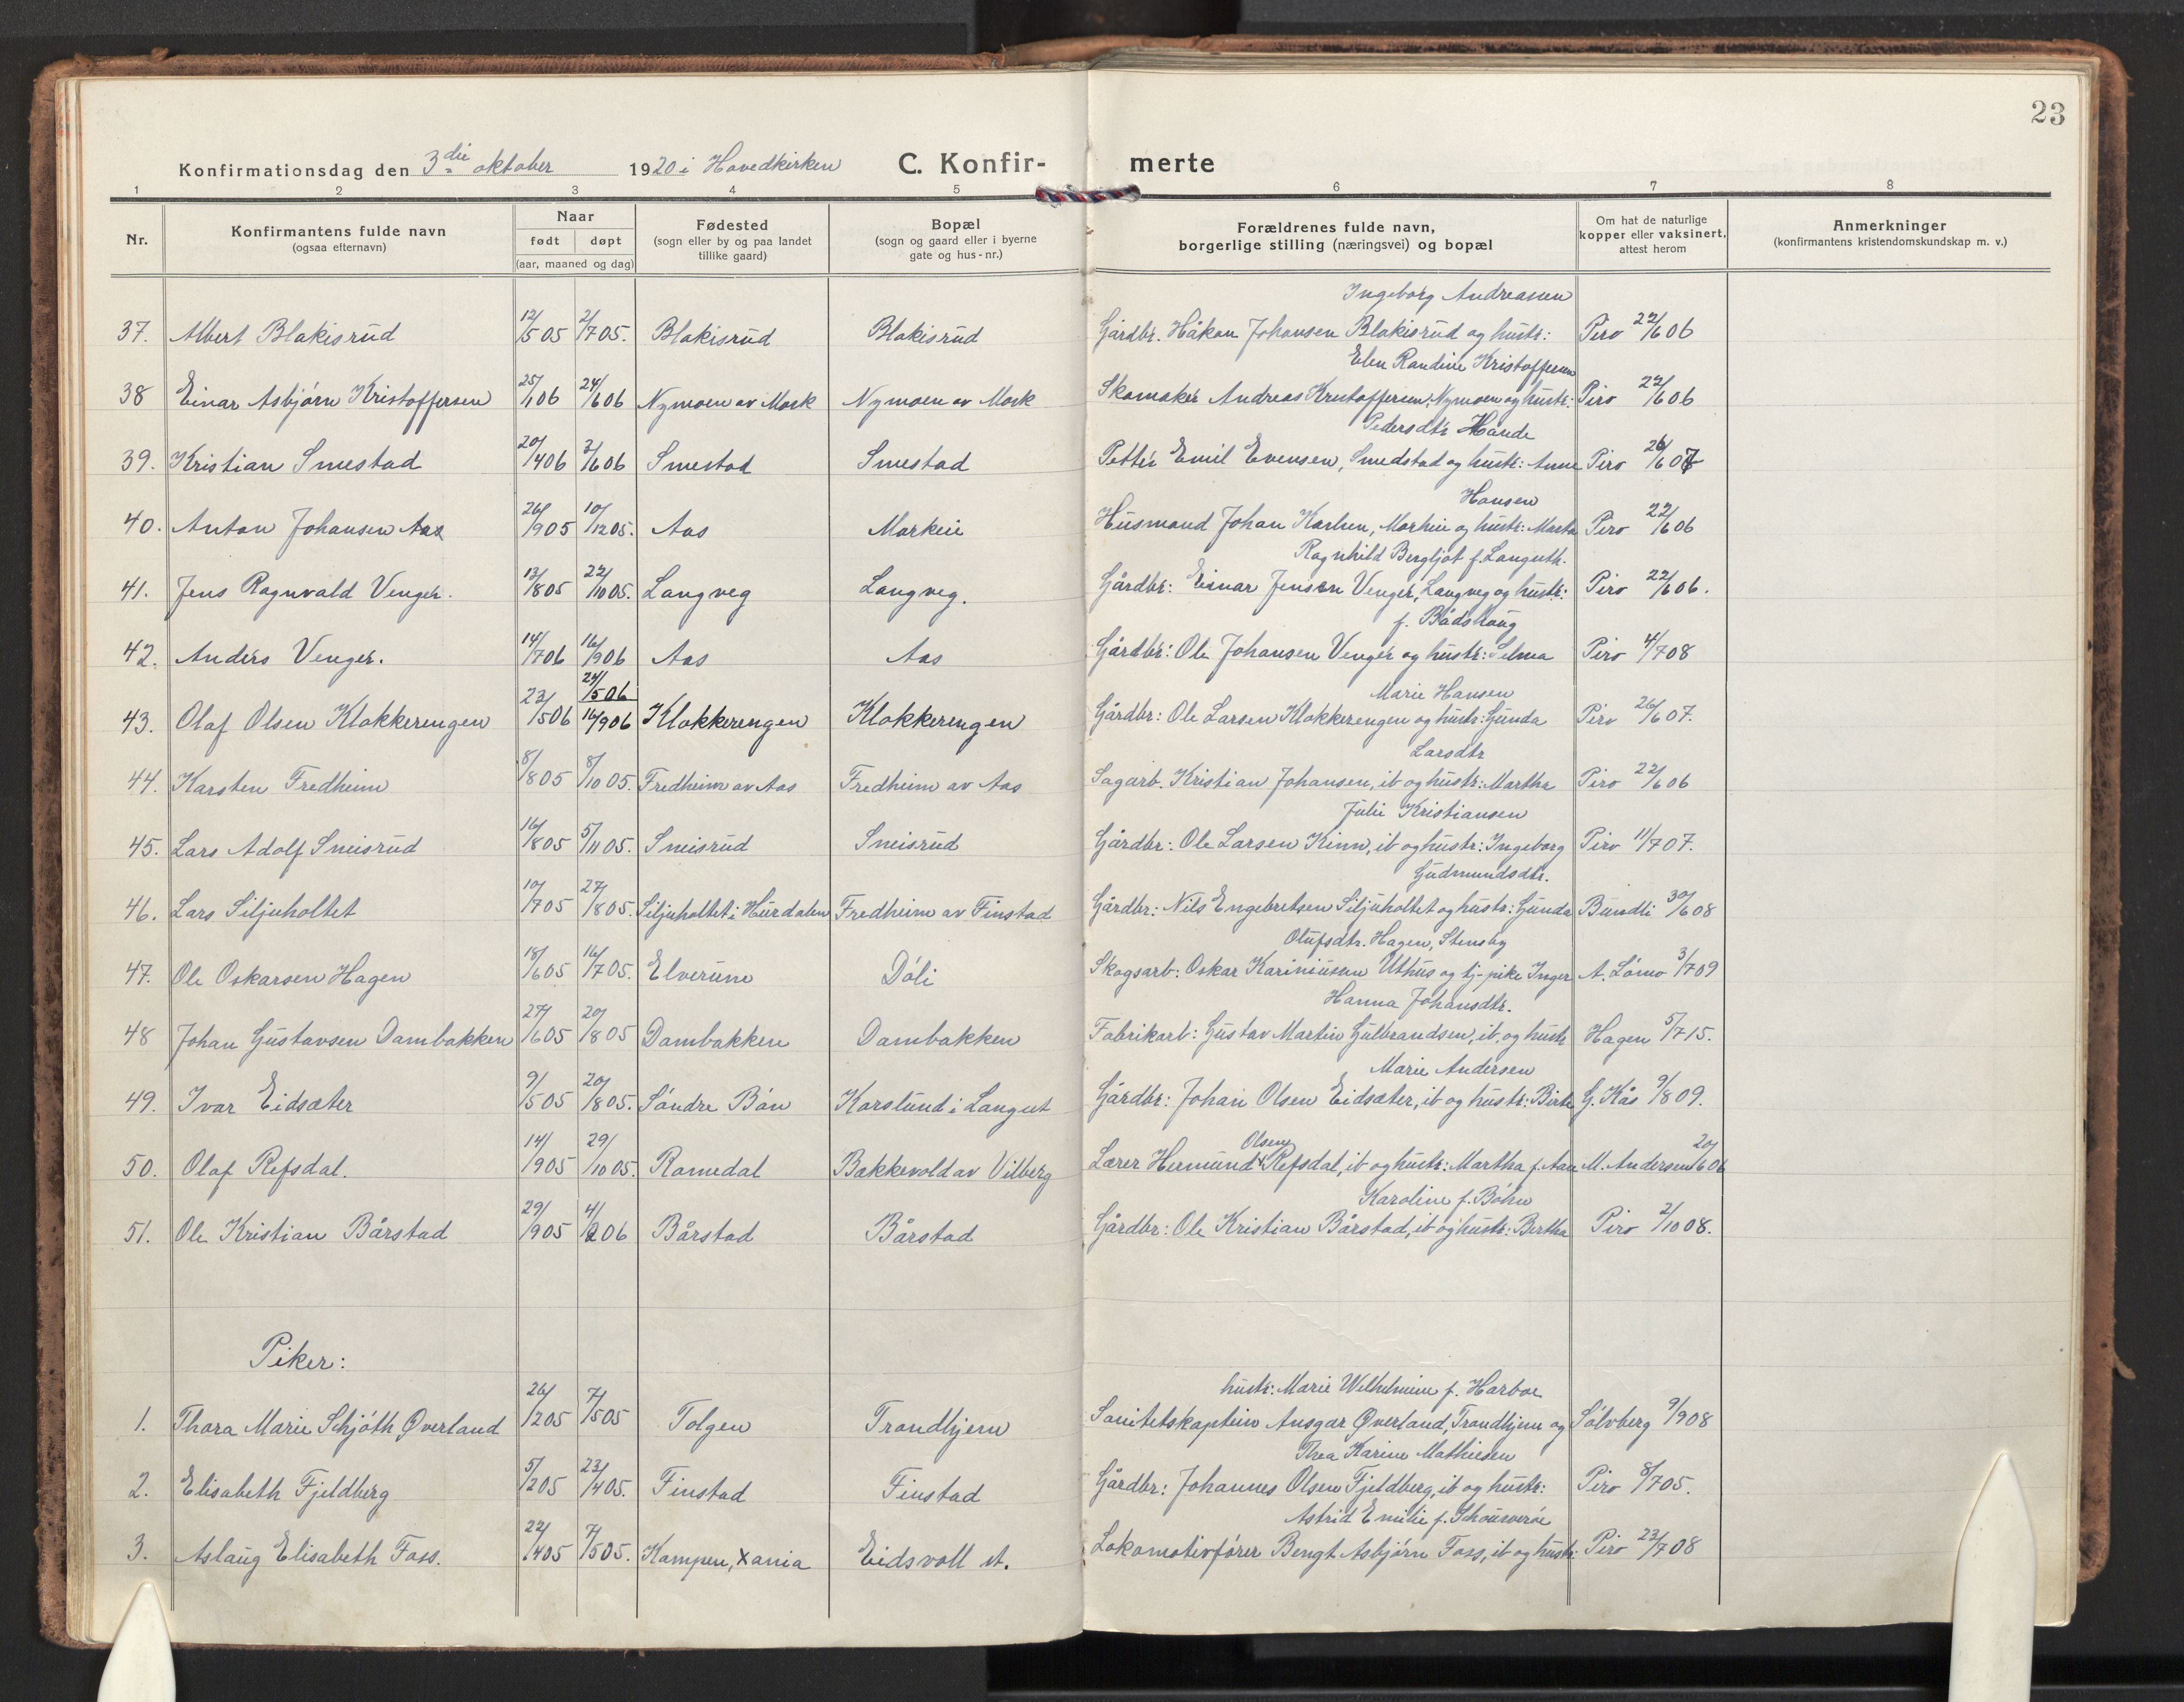 23
Konfirmationsdag den 3die oktober 1920 i Hovedkirken C. Konfir- merte
1 2 3 4 5 6 7 8
Nr. Konfirmantens fulde navn (ogsaa efternavn) Naar født døpt (aar, maaned og dag) Fødested (sogn eller by og paa landet tillike gaard) Bopæl (sogn og gaard eller i byerne gate og hus-nr.) Forældrenes fulde navn, borgerlige stilling (næringsvei) og bopæl Om hat de naturlige kopper eller vaksinert, attest herom Anmerkninger (konfirmantens kristendomskundskap m. v.)
Ingeborg Andreassen
37. Albert Blakisrud 12/5 05 2/7 05. Blakisrud Blakisrud Gårdbr. Håkon Johansen Blakisrud og hustr: Piro 22/6 06
Elen Randine Kristoffersen
38 Einar Asbjørn Kristoffersen 25/1 06 24/6 06 Nymoen av Mork Nymoen av Mork Skomaker Andreas Kristoffersen, Nymoen og hustr: Piro 22/6 06
Pedersdtr Hånde
39. Kristian Smestad 20/4 06 3/6 06 Smestad Smestad Petter Emil Evensen, Smedstad og hustr: Anne Piro 26/6 07
Hansen
40. Anton Johansen Aas 26/9 05 10/12 05. Aas Markeie Husmand Johan Karlsen, Markeie og hustr: Marta Piro 22/6 06
Ragnhild Bergljot f. Languth.
41. Jens Ragnvald Venger. 13/8 05 22/10 05. Langveg Langveg. Gårdbr: Einar Jensen Venger, Langveg og hustr: Piro 22/6 06.
f. Bådshaug
42. Anders Venger. 14/7 06 16/9 06 Aas Aas Gårdbr: Ole Johansen Venger og hustr: Selma Piro 4/7 08
24/5 06 Marie Hansen
43. Olaf Olsen Klokkerengen 23/5 06 16/9 06 Klokkerengen Klokkerengen Gårdbr: Ole Larsen Klokkerengen og hustr: Gunda Piro 26/6 07.
Larsdtr
44. Karsten Fredheim 8/8 05 8/10 05. Fredheim av Aas Fredheim av Aas Sagarb. Kristian Johansen, ib og hustr: Martha Piro 22/6 06
Julie Kristiansen
45. Lars Adolf Sneisrud 16/8 05 5/11 05. Sneisrud Sneisrud Gårdbr: Ole Larsen Kinn, ib og hustr: Ingeborg Piro 11/7 07.
Gudmundsdtr.
46. Lars Siljuholtet 10/7 05 27/8 05. Siljuholtet i Hurdalen Fredheim av Finstad Gårdbr: Nils Engebretsen Siljuholtet og hustr: Gunda Bundli 30/6 08
Olufsdtr. Hagen, Stensby
47. Ole Oskarsen Hagen 18/6 05 16/7 05. Elverum Døli Skogsarb: Oskar Kariniusen Uthus og tj-pike Inger A. Lømo 3/7 09
Hanna Johansdtr.
48 Johan Gustavsen Dambakken 27/6 05 20/8 05 Dambakken Dambakken Fabrikarb: Gustav Martin Gulbrandsen, ib, og hustr Hagen 5/7 15.
Marie Andersen
49. Ivar Eidsæter 9/5 05 20/8 05. Søndre Bøn Karslund i Langset Gårdbr: Johan Olsen Eidsæter, ib og hustr: Birte G. Kås 9/8 09.
Olsen
50. Olaf Refsdal. 14/9 05 29/10 05. Romedal Bakkevold av Vilberg Lærer Hermund Refsdal, ib og hustr: Martha f. Aas M. Andersen 20/6 06
Karoline f. Bøhn
51. Ole Kristian Bårstad 29/9 05 4/2 06 Bårstad Bårstad Gårdbr: Ole Kristian Bårstad, ib og hustr: Bertha Piro 2/10 08.
Piker:
hustr: Marie Wilhelmine f. Harboe
1. Thora Marie Schjøth Øverland 26/2 05 7/5 05 Tolgen Trondhjem Sanitetskaptein Ansgar Øverland, Trondhjem og Sølvberg 9/9 08
Thea Karine Mathiesen
2. Elisabeth Fjeldberg 5/2 05 23/4 05. Finstad Finstad Gårdbr: Johannes Olsen Fjeldberg, ib og hustr: Piro 8/7 05.
Astrid Emilie f.
3. Aslaug Elisabeth Foss. 22/4 05 7/5 05. Kampen, Xania Eidsvoll st. Lokomotivfører Bengt Asbjørn Foss, ib og hustr: Piro 23/7 08